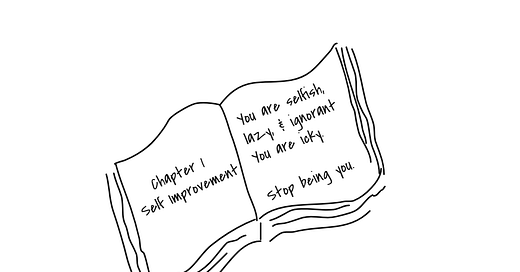 Chapter 1
Self Improvement
You are selfish,
lazy, & ignorant
You are icky.
Stop being you.